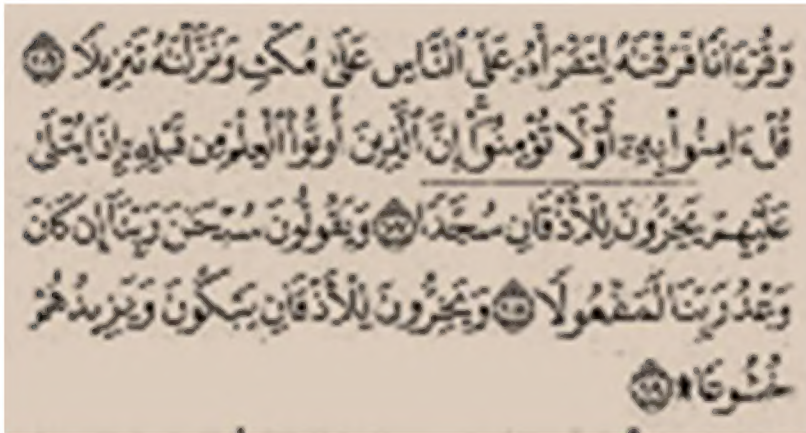 وَقُرْءَانًا فَرَقْنَٰهُ لِتَقْرَأَهُۥ عَلَى ٱلنَّاسِ عَلَىٰ مُكْثٍ وَنَزَّلْنَٰهُ تَنزِيلًا
قُلْ ءَامِنُوا۟ بِهِۦٓ أَوْ لَا تُؤْمِنُوٓا۟ ۚ إِنَّ ٱلَّذِينَ أُوتُوا۟ ٱلْعِلْمَ مِن قَبْلِهِۦٓ إِذَا يُتْلَىٰ
عَلَيْهِمْ يَخِرُّونَ لِلْأَذْقَانِ سُجَّدًا ۝ وَيَقُولُونَ سُبْحَٰنَ رَبِّنَآ إِن كَانَ
وَعْدُ رَبِّنَا لَمَفْعُولًا ۝ وَيَخِرُّونَ لِلْأَذْقَانِ يَبْكُونَ وَيَزِيدُهُمْ
خُشُوعًا ۩